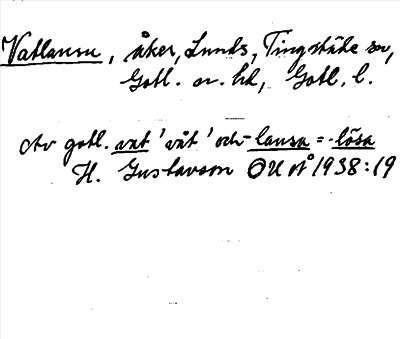 Vatlausu, åker, Lunds, Tingstäde sn,
Gotl. n. hd, Gotl. l.
Av gotl. vat 'våt' och -lausu = -lösa
H. Gustavson OUÅ 1938:19